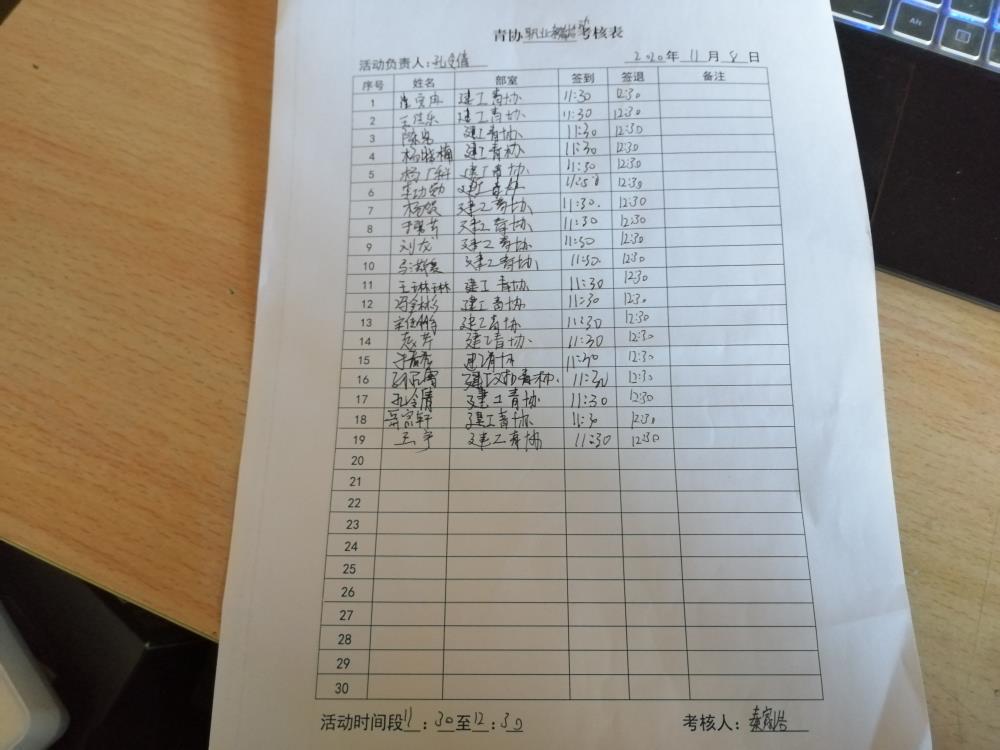 青协职业 考核表
活动负责人:孔令倩 2020年11月8日
序号 姓名 部室 签到 签退 备注
1 建工青协 11:30 12:30
2 建工青协 11:30 12:30
3 建工青协 11:30 12:30
4 杨 梅 建工青协 11:30 12:30
5 杨 建工青协 11:30 12:30
6 建工青协 12:30
7 杨 建工青协 11:30. 12:30
8 于 芳 建工青协 11:30 12:30
9 刘龙 建工青协 11:30 12:30
10 建工青协 11:30 12:30
11 王琳琳 建工青协 11:30 12:30
12 冯金彬 建工青协 11:30 12:30
13 建工青协 11:30 12:30
14 建工青协 11:30 12:30
15 于 建工青协 11:30 12:30
16 建工 青协. 11:30 12:30
17 孔令倩 建工青协 11:30 12:30
18 建工青协 11:30 12:30
19 王宇 建工青协 11:30 12:30
20
21
22
23
24
25
26
27
28
29
30
活动时间段11:30至12:30 考核人:秦
Alt